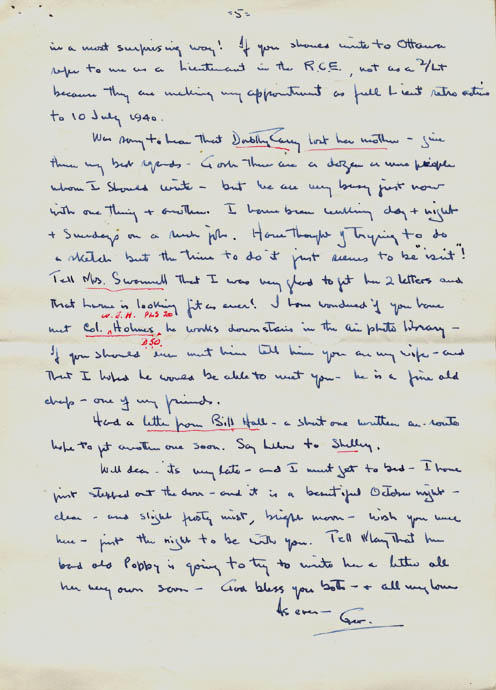 -5-
in a most surprising way! If you should write to Ottawa
refer to me as a Lieutenant in the R.C.E., not as a 2/Lt
because they are making my appointment as full Lieut retroactive
to 10 July 1940.
Was sorry to hear that Dorothy Carry lost her mother - give
them my best regards - Gosh there are a dozen or more people
whom I should write - but we are very busy just now
with one thing + another. I have been working day + night
+ Sundays on a rush job. Have thought of trying to do
a sketch but the time to do it just seems to be "isn't"!
Tell Mrs. Swannell that I was very glad to get her 2 letters and
that Lorne is looking fit as ever! I have wondered if you have
W.J.H. PLS 20
met Col. Holmes, he works downstairs in the air photo library -
D50.
If you should ever meet him tell him you are my wife - and
that I hoped he would be able to meet you - he is a fine old
chap - one of my friends.
Had a letter from Bill Hall - a short one written en-route
hope to get another one soon. Say hello to Shelley.
Well dear - its very late - and I must get to bed - I have
just stepped out the door - and it is a beautiful October night -
clear - and slight frosty mist, bright moon - wish you were
here - just the night to be with you. Tell May that her
bad old Poppy is going to try to write her a letter all
her very own soon - God bless you both - + all my love
As ever -
Geo.